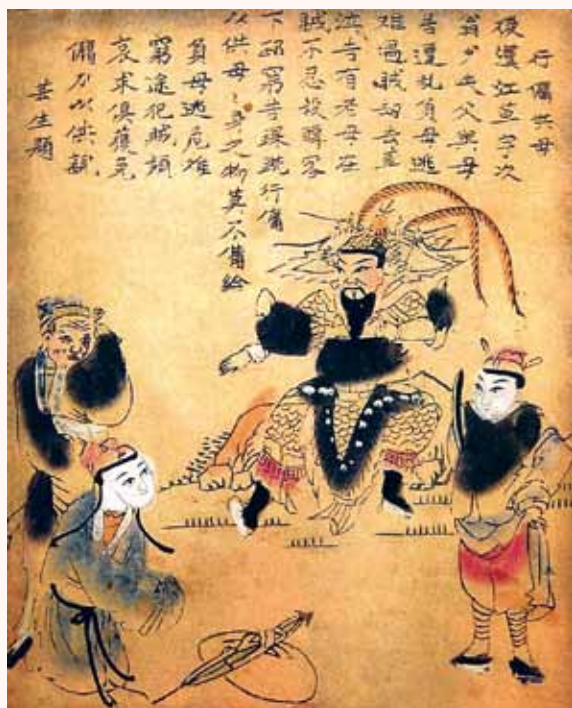 行傭供母
後漢江革字次
翁少失父與母
居遭乱負母逃
难遇賊劫去革
泣告有老母在
賊不忍殺轉客
下邳窮苦裸跣行傭
以供母々身之物莫不備給
負母逃危难
窮途犯賊頻
哀求俱獲免
傭力以供親
生題